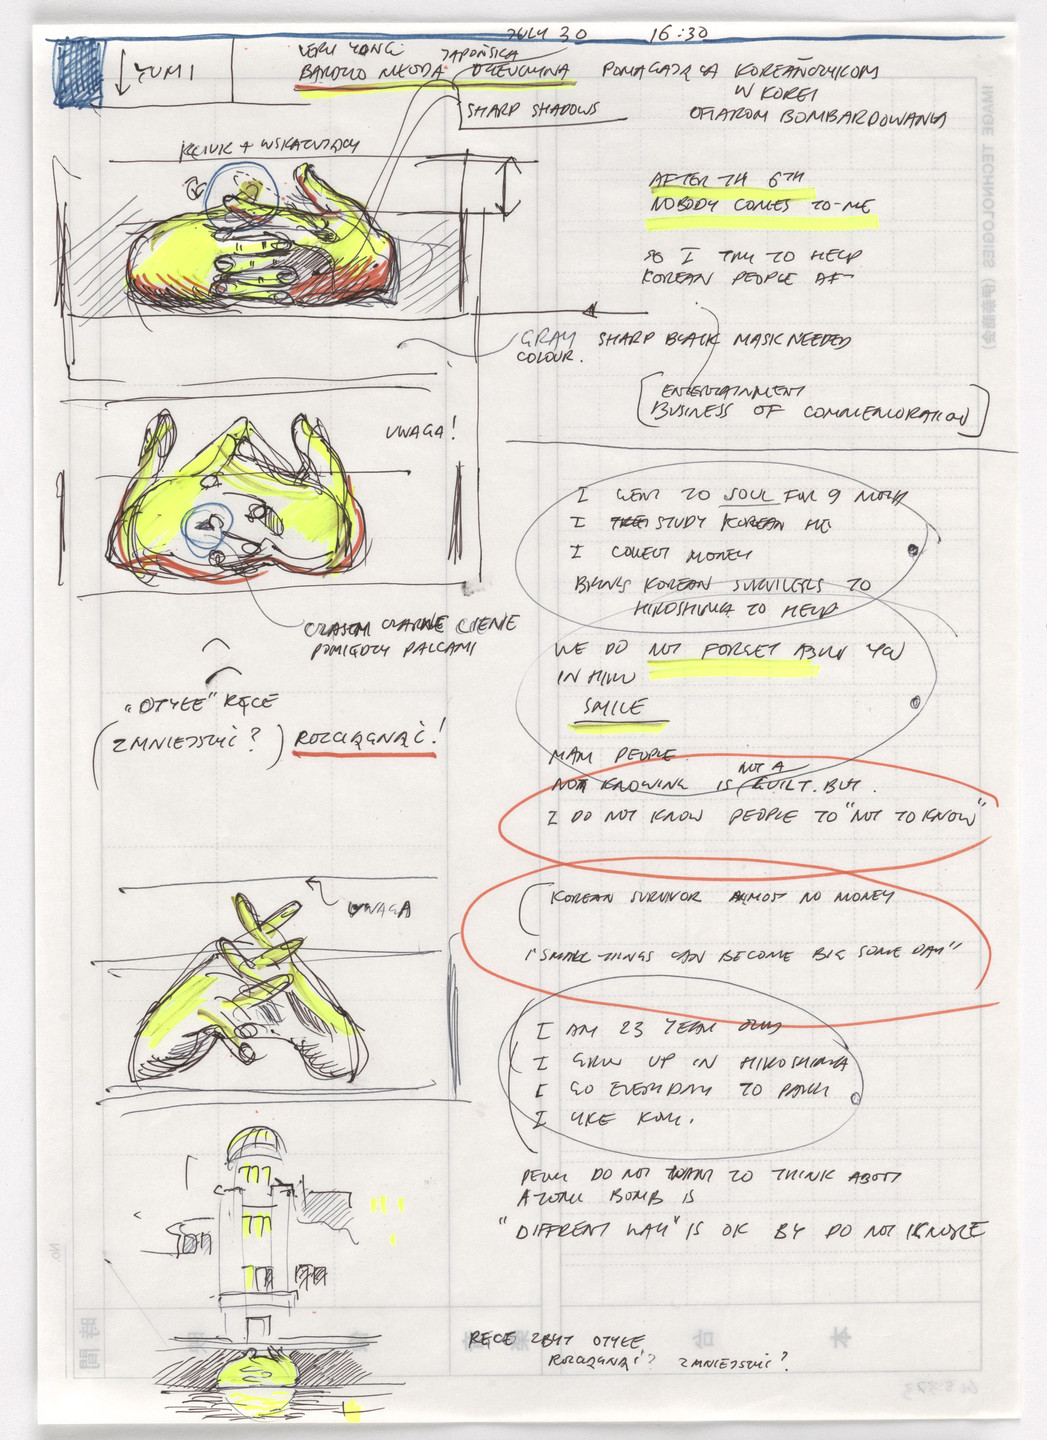 JULY 30 16:30
YUMI
VERY YONG
JAPOŃSKA
BARDZO MŁODA DZIEWCZYNA POMAGAJĄCA KOREAŃCZYKOM
W KOREI
OFIAROM BOMBARDOWANIA
SHARP SHADOWS
KCIUK + WSKAZUJĄCY
AFTER TH 6TH
NOBODY COMES TO ME
SO I TRY TO HELP
KOREAN PEOPLE AF
GRAY SHARP BLACK MASK NEEDED
COLOUR.
[ENTERTAINMENT
BUSINESS OF COMMEMORATION]
UWAGA!
I WENT TO SOUL FOR 9 MONTH
I STUDY KOREAN
I COLECT MONEY
BRINGS KOREAN SURVILERS TO
HIROSHIMA TO HELP
CZASEM CZARNE CIENIE
POMIĘDZY PALCAMI
WE DO NOT FORGET ABOU YOU
IN HIRO
SMILE
"OTYŁE" RĘCE
(ZMNIEJSZYĆ?) ROZCIĄGNĄĆ!
MANY PEOPLE
NOT A
NOT KNOWING IS GUILT. BUT.
I DO NOT KNOW PEOPLE TO "NOT TO KNOW"
UWAGA
KOREAN SURVIVOR ALMOST NO MONEY
"SMALL THINGS CAN BECOME BIG SOME DAY"
I AM 23 YEAR OLD
I GREW UP IN HIROSHIMA
I GO EVERYDAY TO PARK
I LIKE
PEOPLE DO NOT WANT TO THINK ABOUT
ATOMIC BOMB IS
"DIFFRENT WAY" IS OK BY DO NOT IGNORE
RĘCE ZBYT OTYŁE
ROZCIĄGNĄĆ? ZMNIEJSZYĆ?